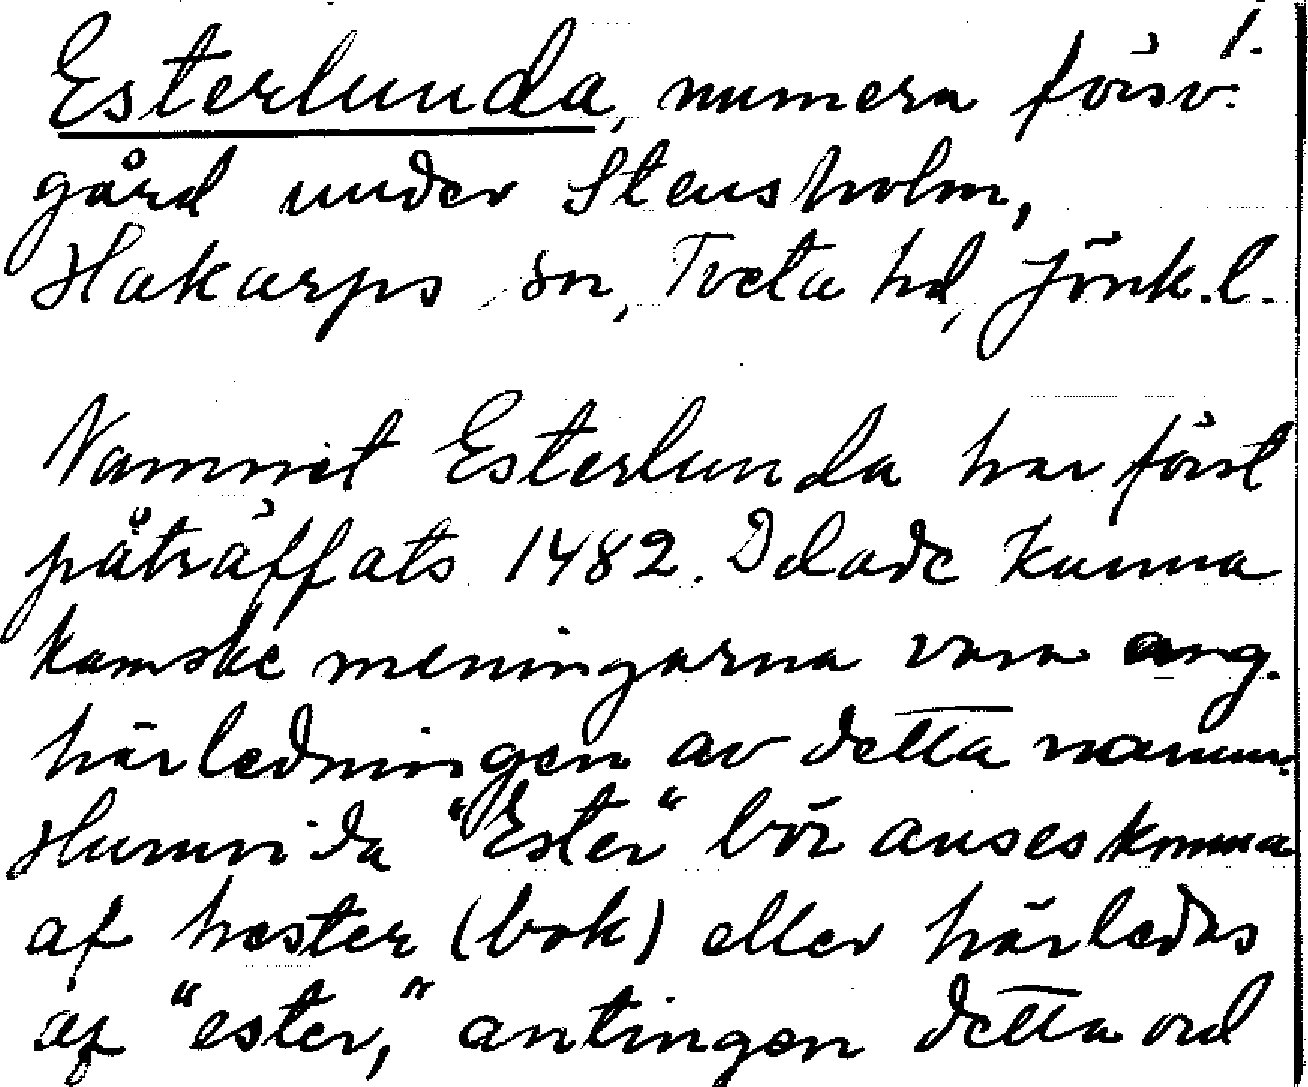 1.
Esterlunda, numera försv.
gård under Stensholm,
Hakarps sn, Tveta hd, Jönk.l.
Namnet Esterlunda har först
påträffats 1482. Delade kunna
kanske meningarna vara ang.
härledningen av detta namn.
Huruvida "Ester" bör anses komma
af hester (bok) eller härledas
af "ester," antingen detta ord